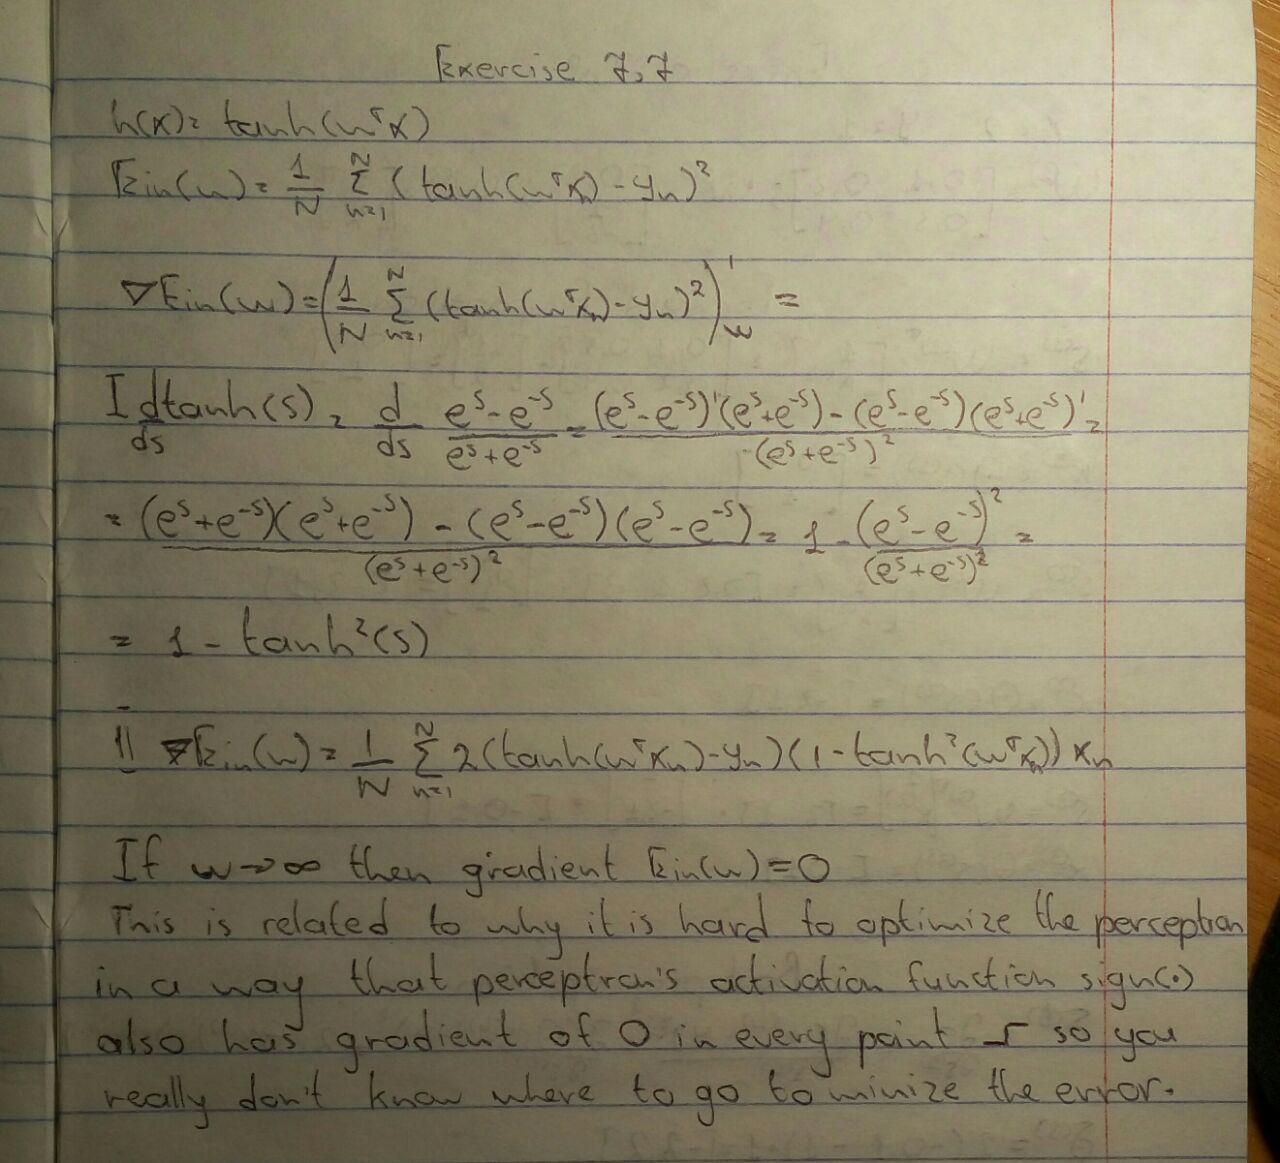 Exercise 7.7
h(x) = tanh(wᵀx)
Ein(w) = 1/N Σ_{n=1}^{N} (tanh(wᵀxₙ) - yₙ)²
∇Ein(w) = (1/N Σ_{n=1}^{N} (tanh(wᵀxₙ) - yₙ)²)'_w =
I dtanh(s)/ds = d/ds (eˢ - e⁻ˢ)/(eˢ + e⁻ˢ) = ((eˢ - e⁻ˢ)'(eˢ + e⁻ˢ) - (eˢ - e⁻ˢ)(eˢ + e⁻ˢ)')/(eˢ + e⁻ˢ)² =
= ((eˢ + e⁻ˢ)(eˢ + e⁻ˢ) - (eˢ - e⁻ˢ)(eˢ - e⁻ˢ))/(eˢ + e⁻ˢ)² = 1 - (eˢ - e⁻ˢ)²/(eˢ + e⁻ˢ)² =
= 1 - tanh²(s)
II ∇Ein(w) = 1/N Σ_{n=1}^{N} 2(tanh(wᵀxₙ) - yₙ)(1 - tanh²(wᵀxₙ)) xₙ
If w → ∞ then gradient Ein(w) = 0
This is related to why it is hard to optimize the perceptron
in a way that perceptron's activation function sign(.)
also has gradient of 0 in every point so you
really don't know where to go to minize the error.